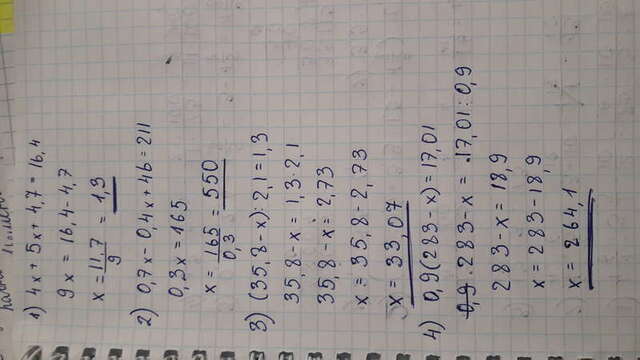 1) 4x + 5x + 4,7 = 16,4
9x = 16,4 - 4,7
x = 11,7/9 = 1,3
2) 0,7x - 0,4x + 46 = 211
0,3x = 165
x = 165/0,3 = 550
3) (35,8 - x) : 2,1 = 1,3
35,8 - x = 1,3 · 2,1
35,8 - x = 2,73
x = 35,8 - 2,73
x = 33,07
4) 0,9(283 - x) = 17,01
283 - x = 17,01 : 0,9
283 - x = 18,9
x = 283 - 18,9
x = 264,1